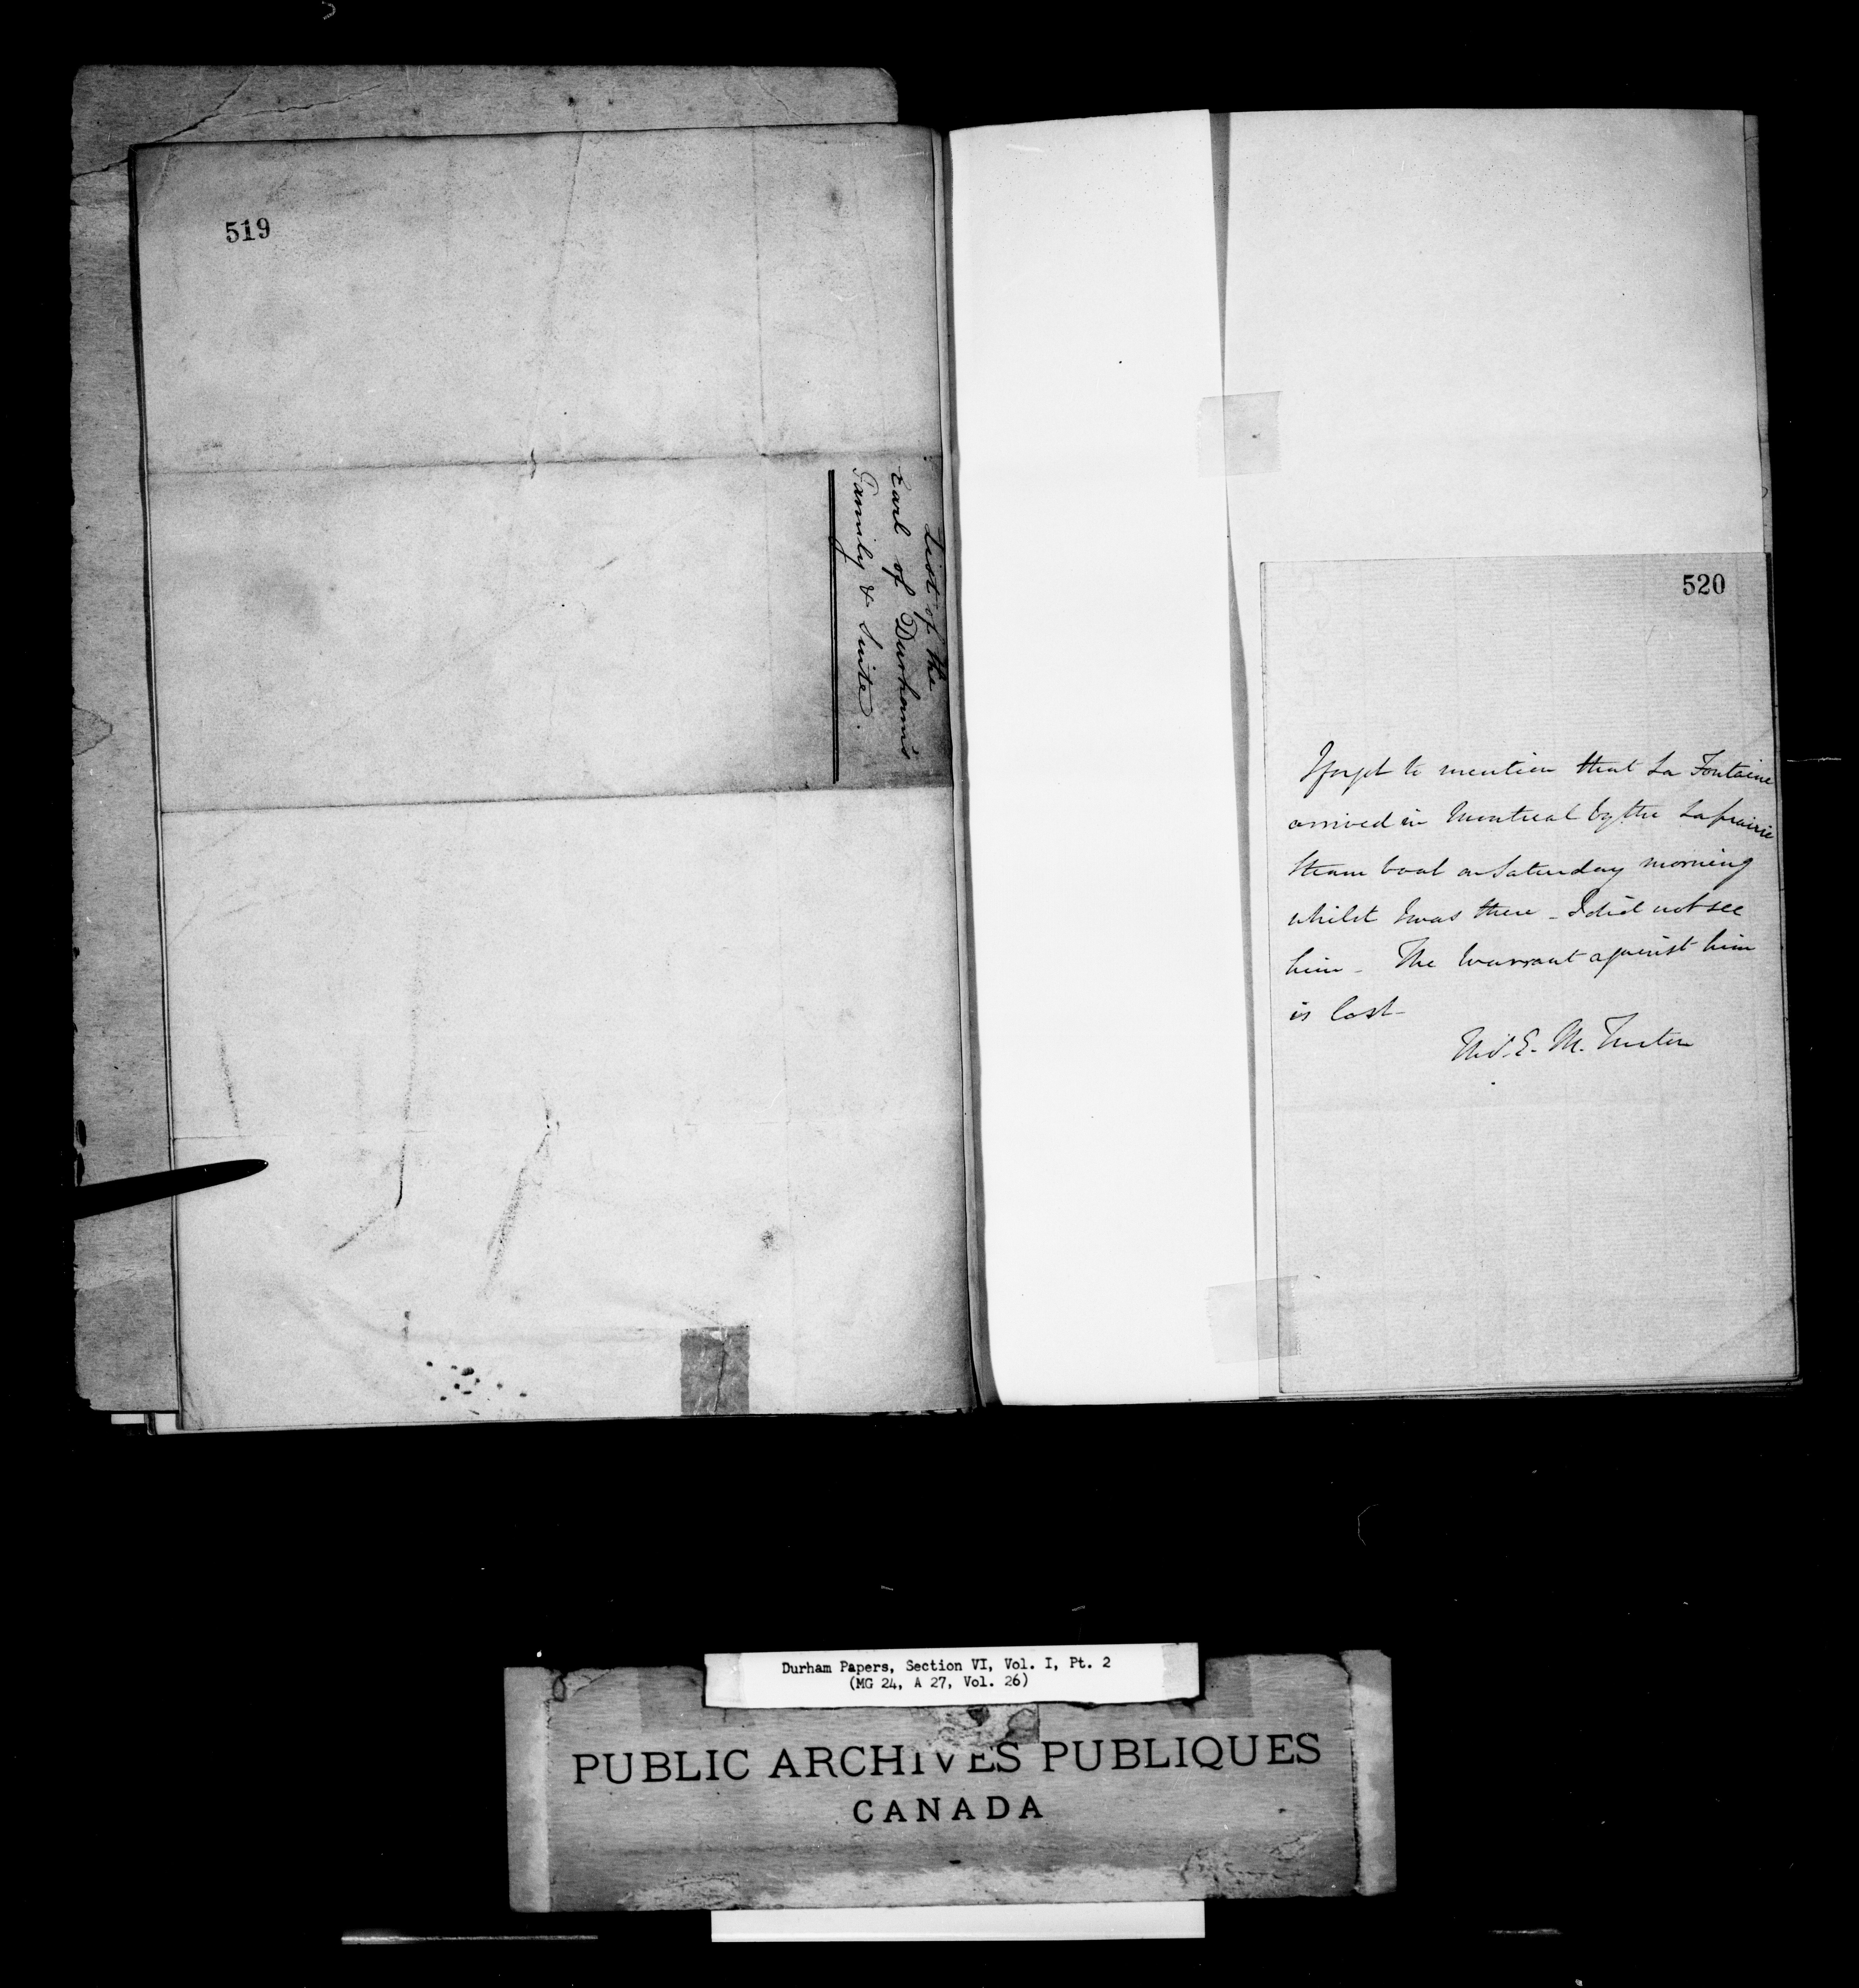 519
List of the
Earl of Durham's
Family & Suite.
520
I forgot to mention that La Fontaine
arrived in Montreal by the Laprairie
Steam boat on Saturday morning
whilst I was there _ I did not see
him _ The Warrant against him
is lost _
Thos. E. M. Turton
Durham Papers, Section VI, Vol. I, Pt. 2
(MG 24, A 27, Vol. 26)
PUBLIC ARCHIVES PUBLIQUES
CANADA